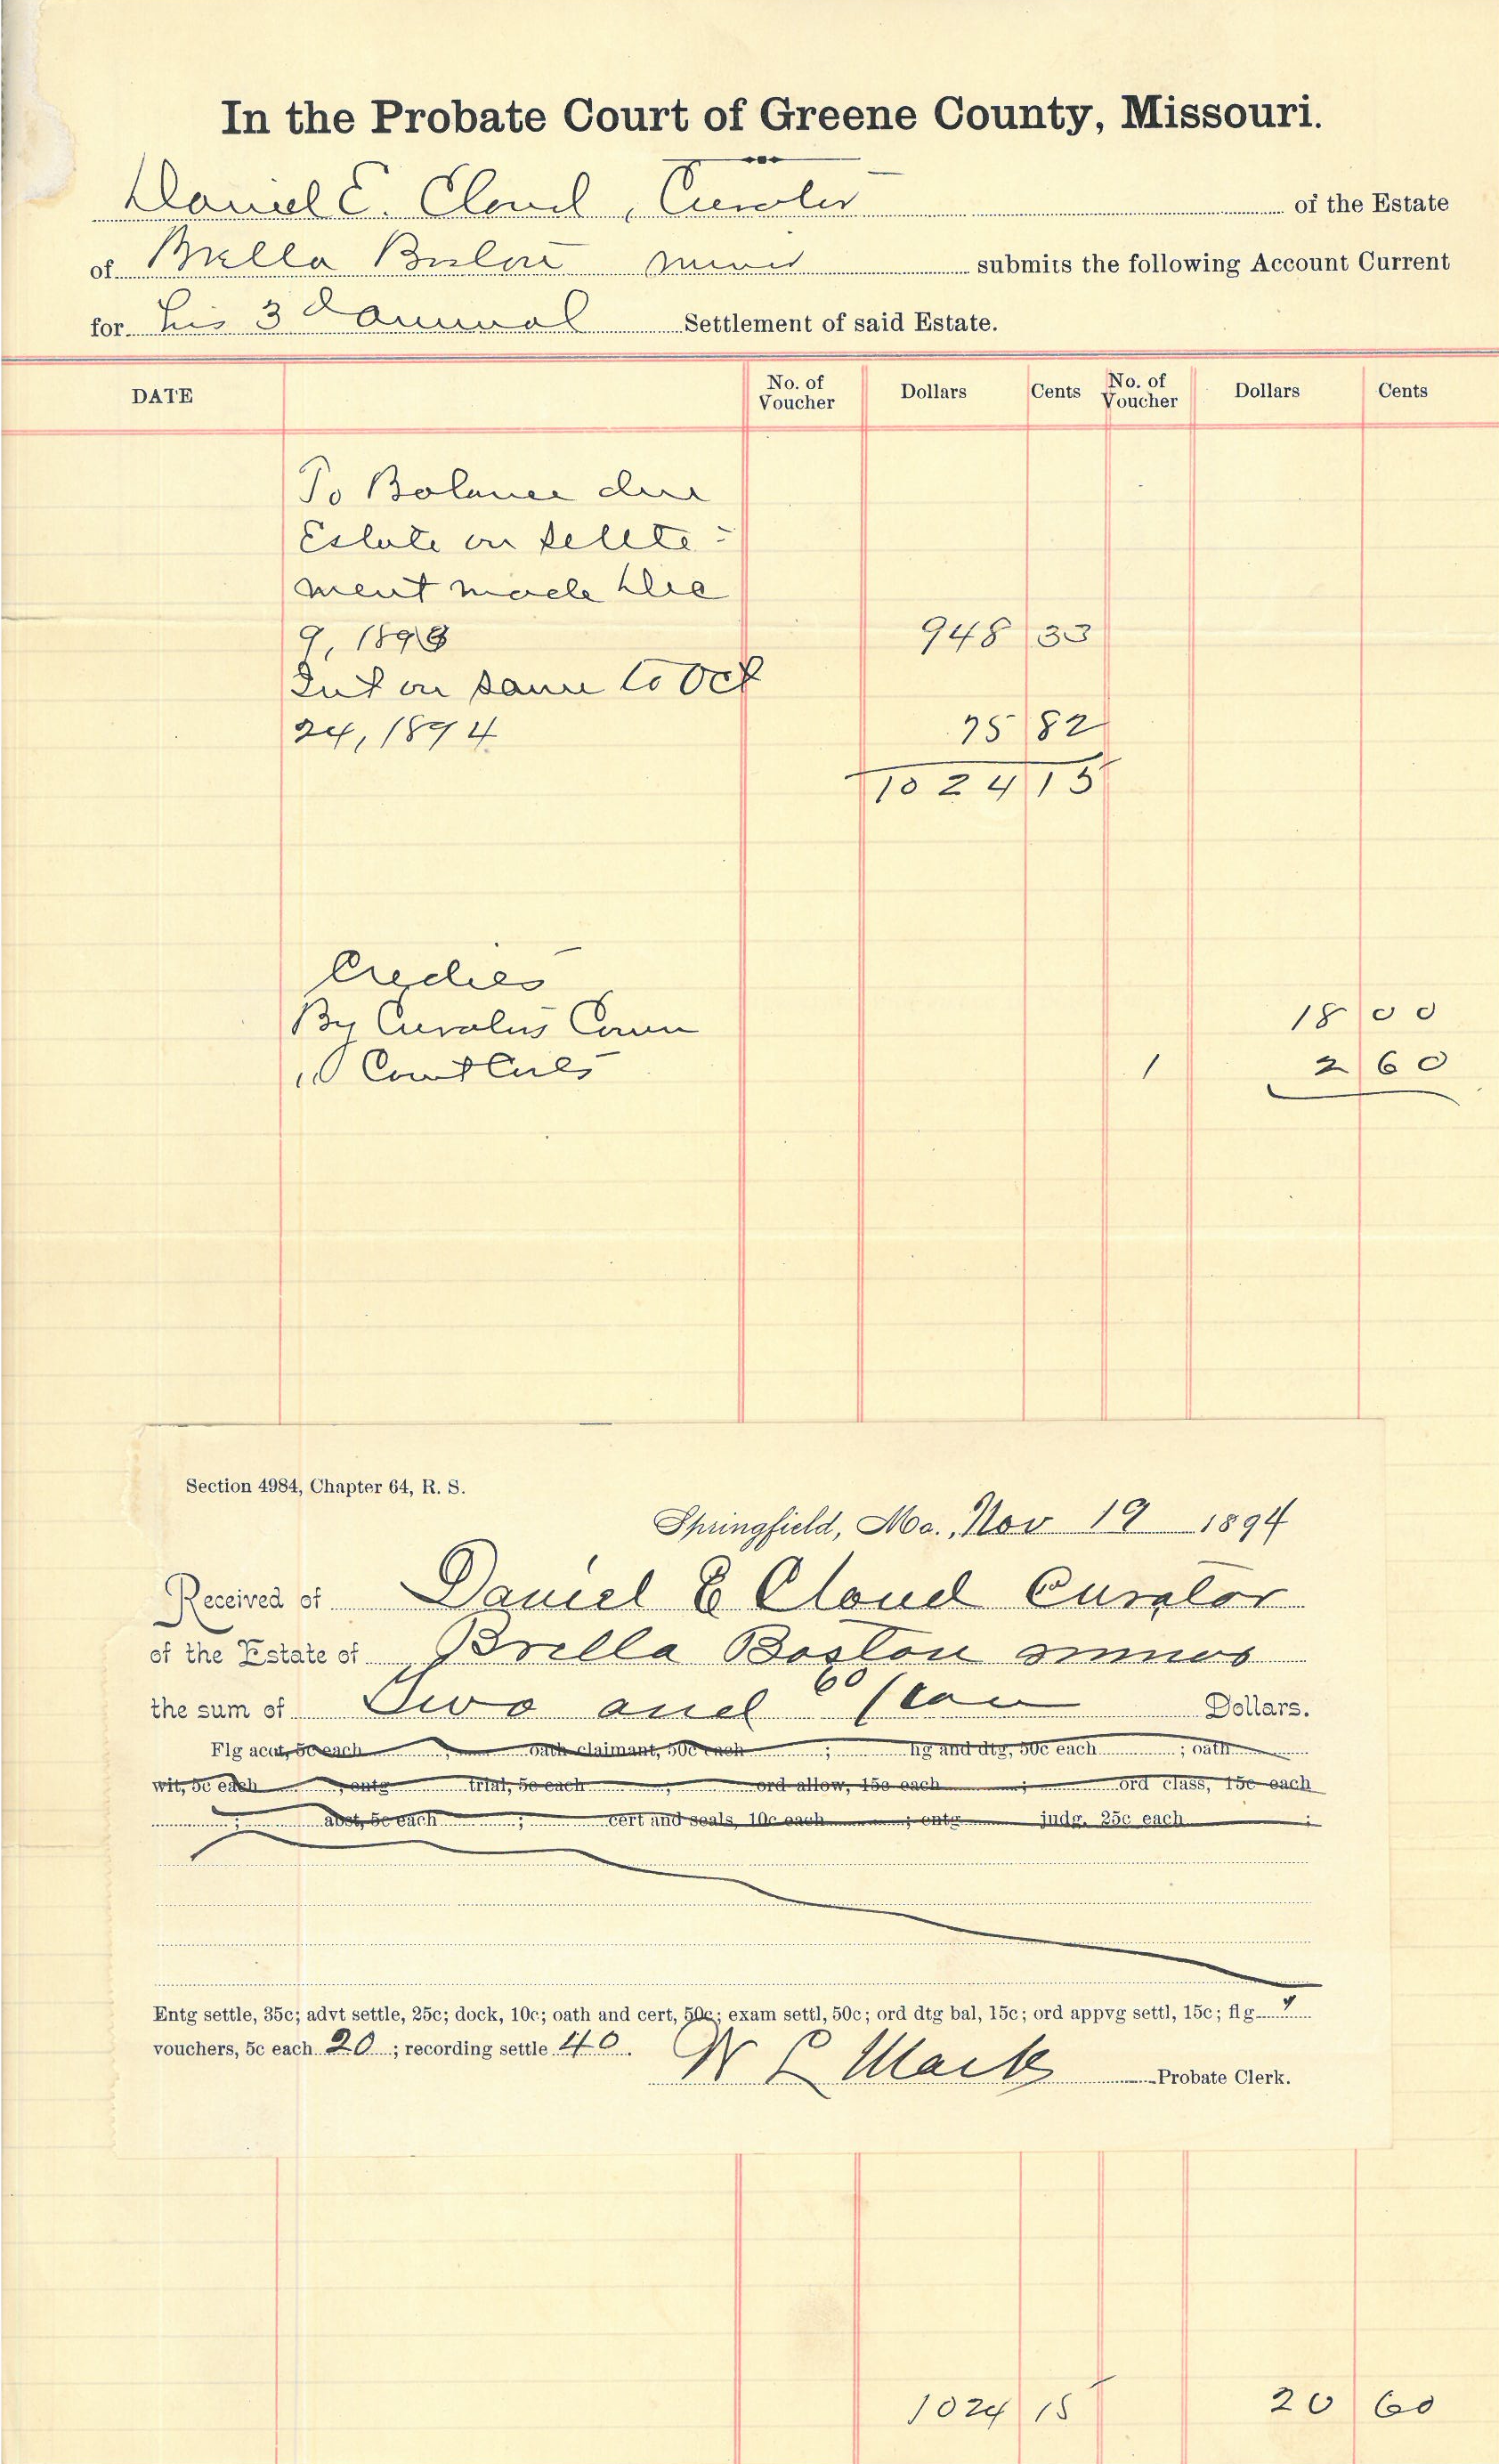 In the Probate Court of Greene County, Missouri.
Daniel E. Cloud, Curator of the Estate
of Brella Boston minor submits the following Account Current
for his 3d annual Settlement of said Estate.
DATE No. of Voucher Dollars Cents No. of Voucher Dollars Cents
To Balance due
Estate on settle=
ment made Dec
9, 1893 948 33
Int on same to Oct
24, 1894 75 82
1024 15
Credits
By Curators Comm 18 00
" Court Costs 1 2 60
Section 4984, Chapter 64, R. S.
Springfield, Mo., Nov 19 1894
Received of Daniel E Cloud Curator
of the Estate of Brella Boston minor
the sum of Two and 60/100 Dollars.
Flg acct, 5c each ; oath claimant, 50c each ; hg and dtg, 50c each ; oath
wit, 5c each ; entg trial, 5c each ; ord allow, 15c each ; ord class, 15c each
; abst, 5c each ; cert and seals, 10c each ; entg judg, 25c each ;
Entg settle, 35c; advt settle, 25c; dock, 10c; oath and cert, 50c; exam settl, 50c; ord dtg bal, 15c; ord appvg settl, 15c; flg
vouchers, 5c each 20 ; recording settle 40 .
Probate Clerk.
1024 15 20 60